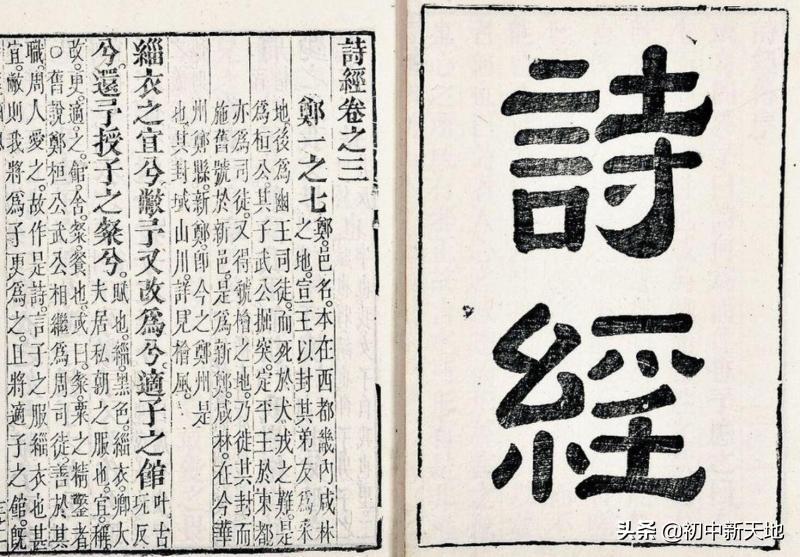 詩經
詩經卷之三
鄭一之七
鄭。邑名。本在西都畿內咸林
之地。宣王以封其弟友為采
地。後為幽王司徒。而死於犬戎之難。是
為桓公。其子武公掘突。定平王於東都。
亦為司徒。又得虢檜之地。乃徙其封。而
施舊號於新邑。是為新鄭。咸林。在今華
州鄭縣。新鄭。即今之鄭州是
也。其封域山川。詳見檜風。
緇衣之宜兮。敝予又改為兮。適子之館叶古玩反
兮。還予授子之粲兮。賦也。緇。黑色。緇衣。卿大
夫居私朝之服也。宜。稱。
改。更。適。之。館。舍。粲。餐也。或曰。粲。粟之精鑿者。
○舊說鄭桓公武公。相繼為周司徒。善於其
職。周人愛之。故作是詩。言子之服緇衣也甚
宜。敝則我將為子更為之。且將適子之館。既
头条 @初中新天地